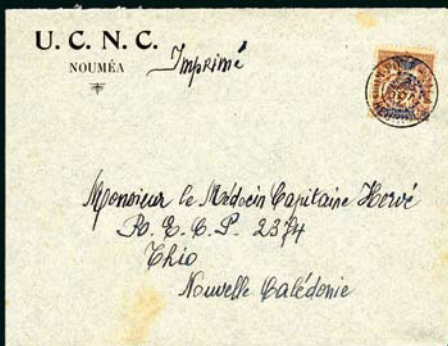 U. C. N. C.
NOUMÉA
Imprimé
Monsieur le Médecin Capitaine Hervé
P.O. E. C. P. 2374
Thio
Nouvelle Calédonie